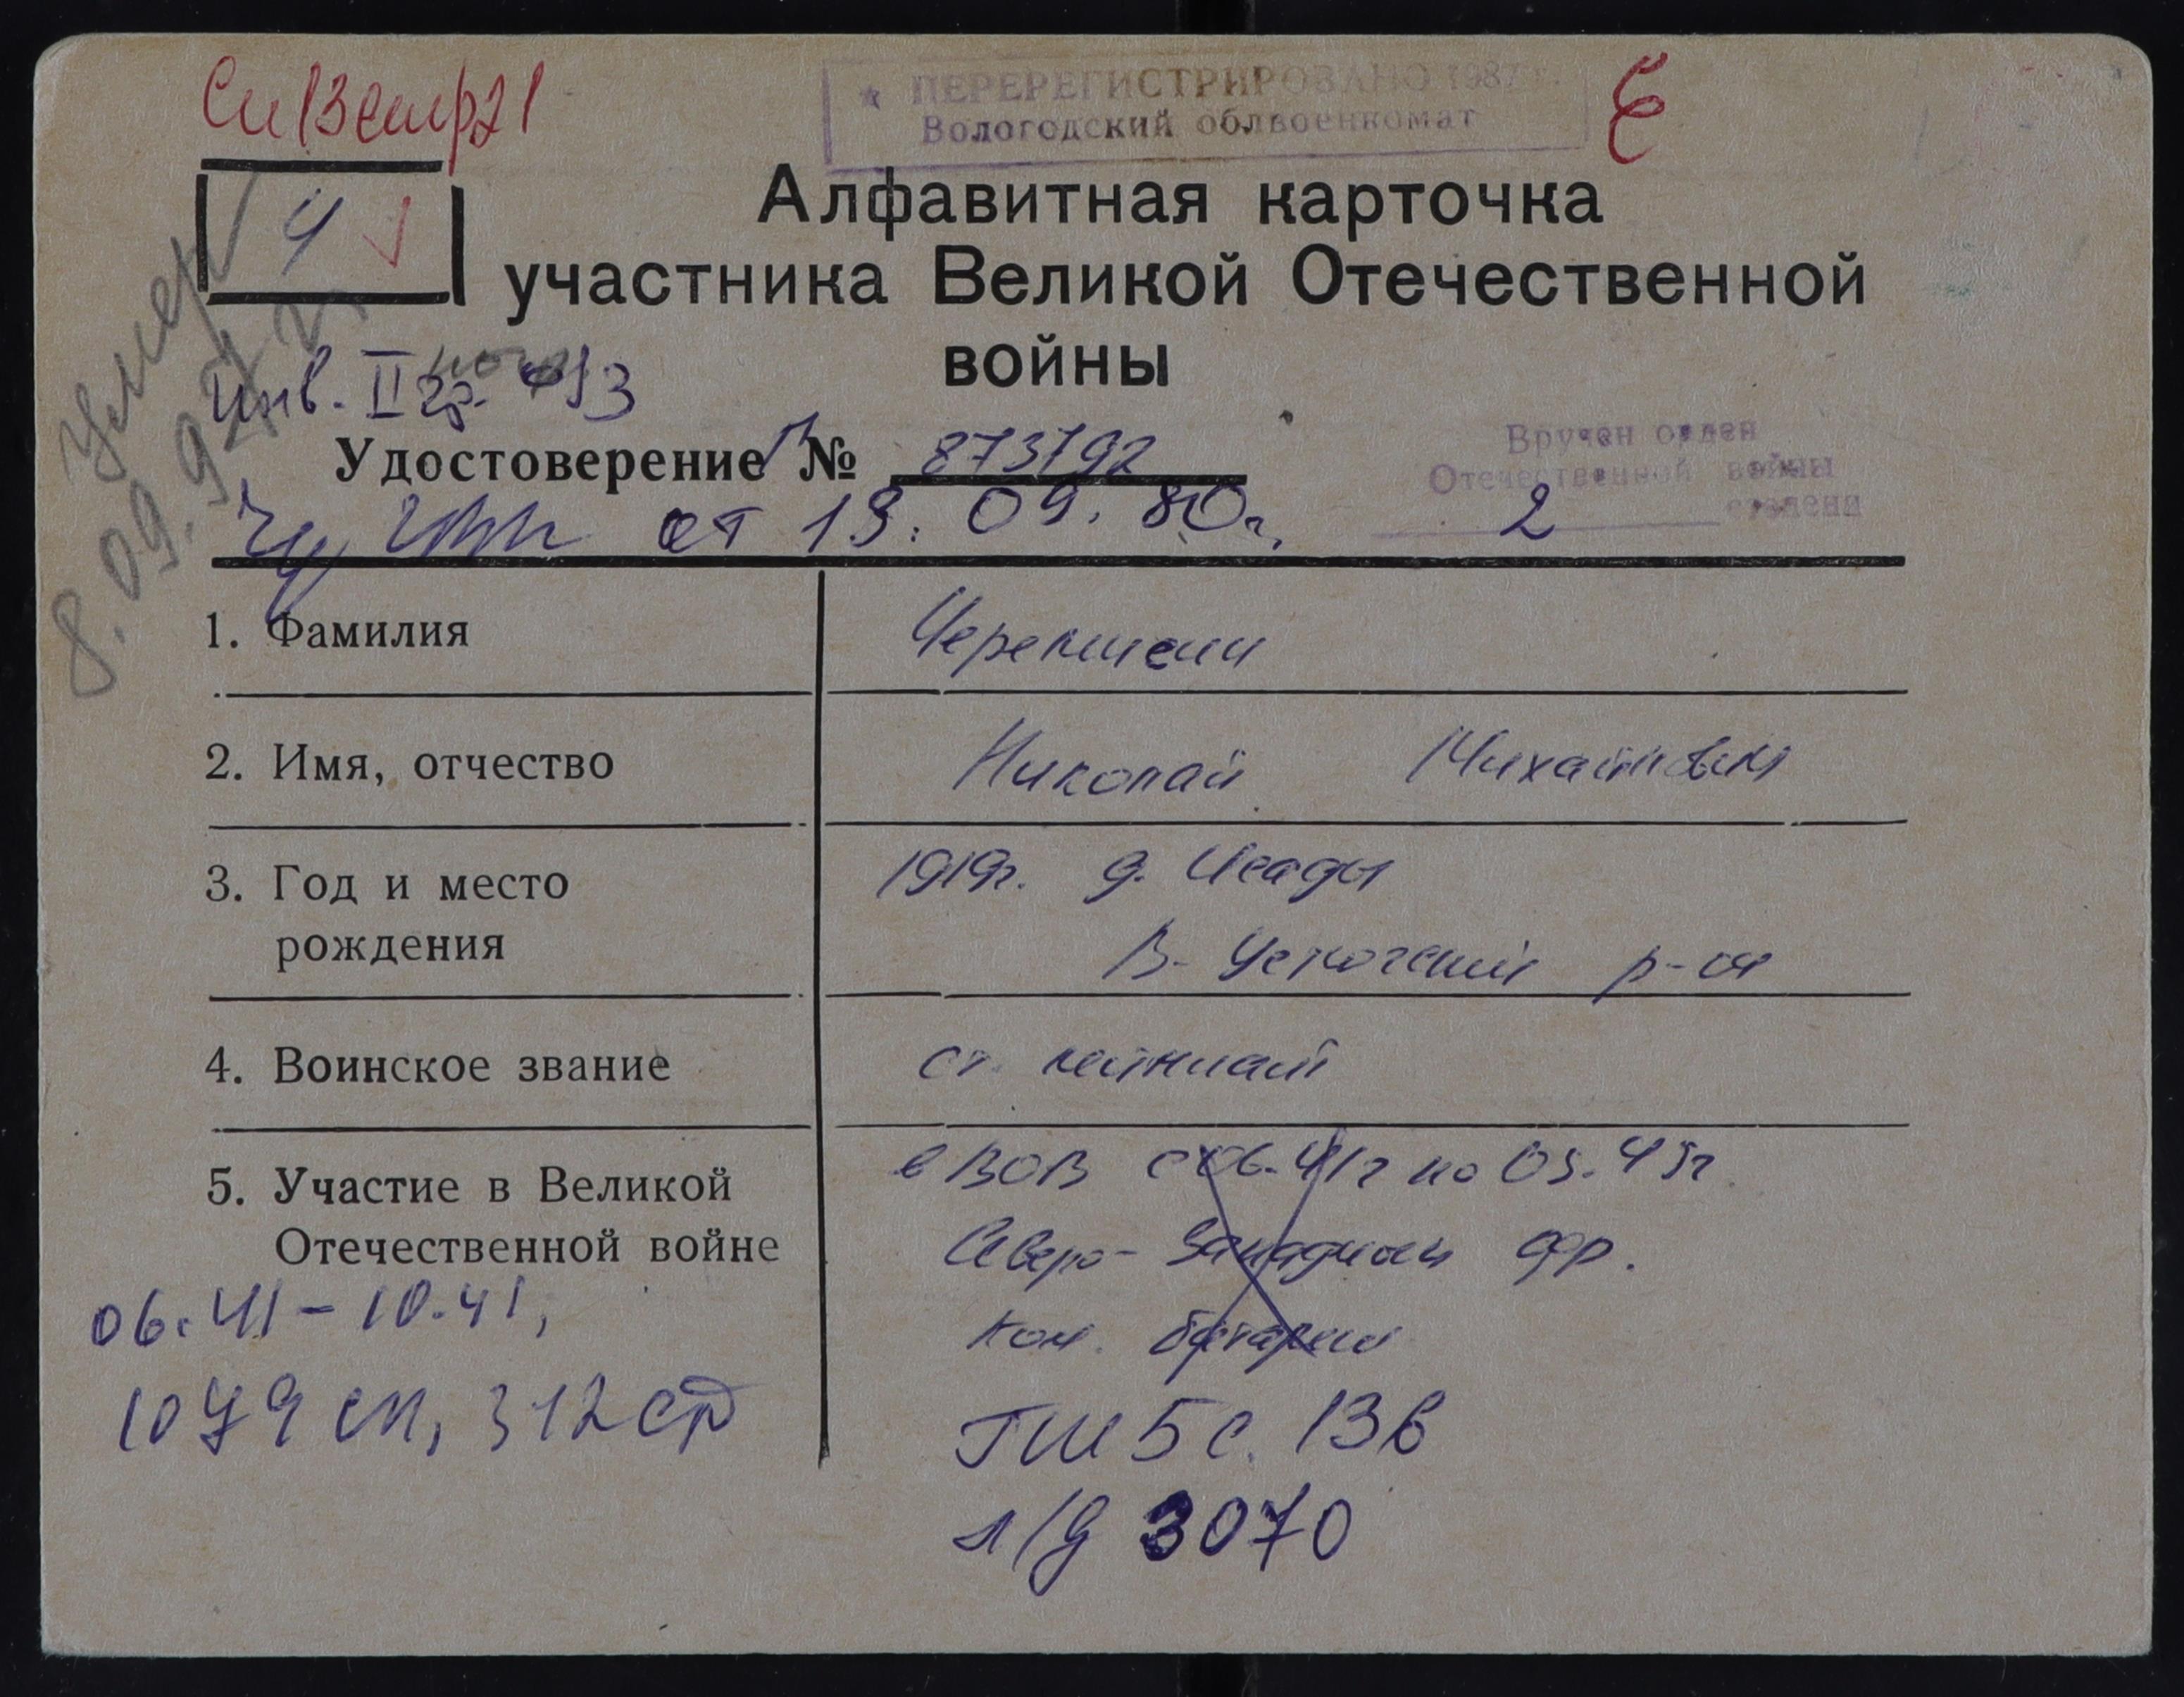 Сп 13 стр 21
★ ПЕРЕРЕГИСТРИРОВАНО 1987 г.
Вологодский облвоенкомат
Ч
Алфавитная карточка
участника Великой Отечественной
войны
Умер
8.09.92 г.
инв. II гр.
Удостоверение №
873192
от 19.09.80г.
Вручен орден
Отечественной войны
2 степени
1. Фамилия
Черепишин
2. Имя, отчество
Николай Михайлович
3. Год и место
рождения
1919г. д. Исады
В-Устюгский р-он
4. Воинское звание
ст. лейтенант
5. Участие в Великой
Отечественной войне
в ВОВ с 06.41г по 05.45г.
Северо-Западный фр.
Ком. батареи
06.41-10.41,
1079 сп, 312 сд
ГШ 5 с. 136
л/д 3070